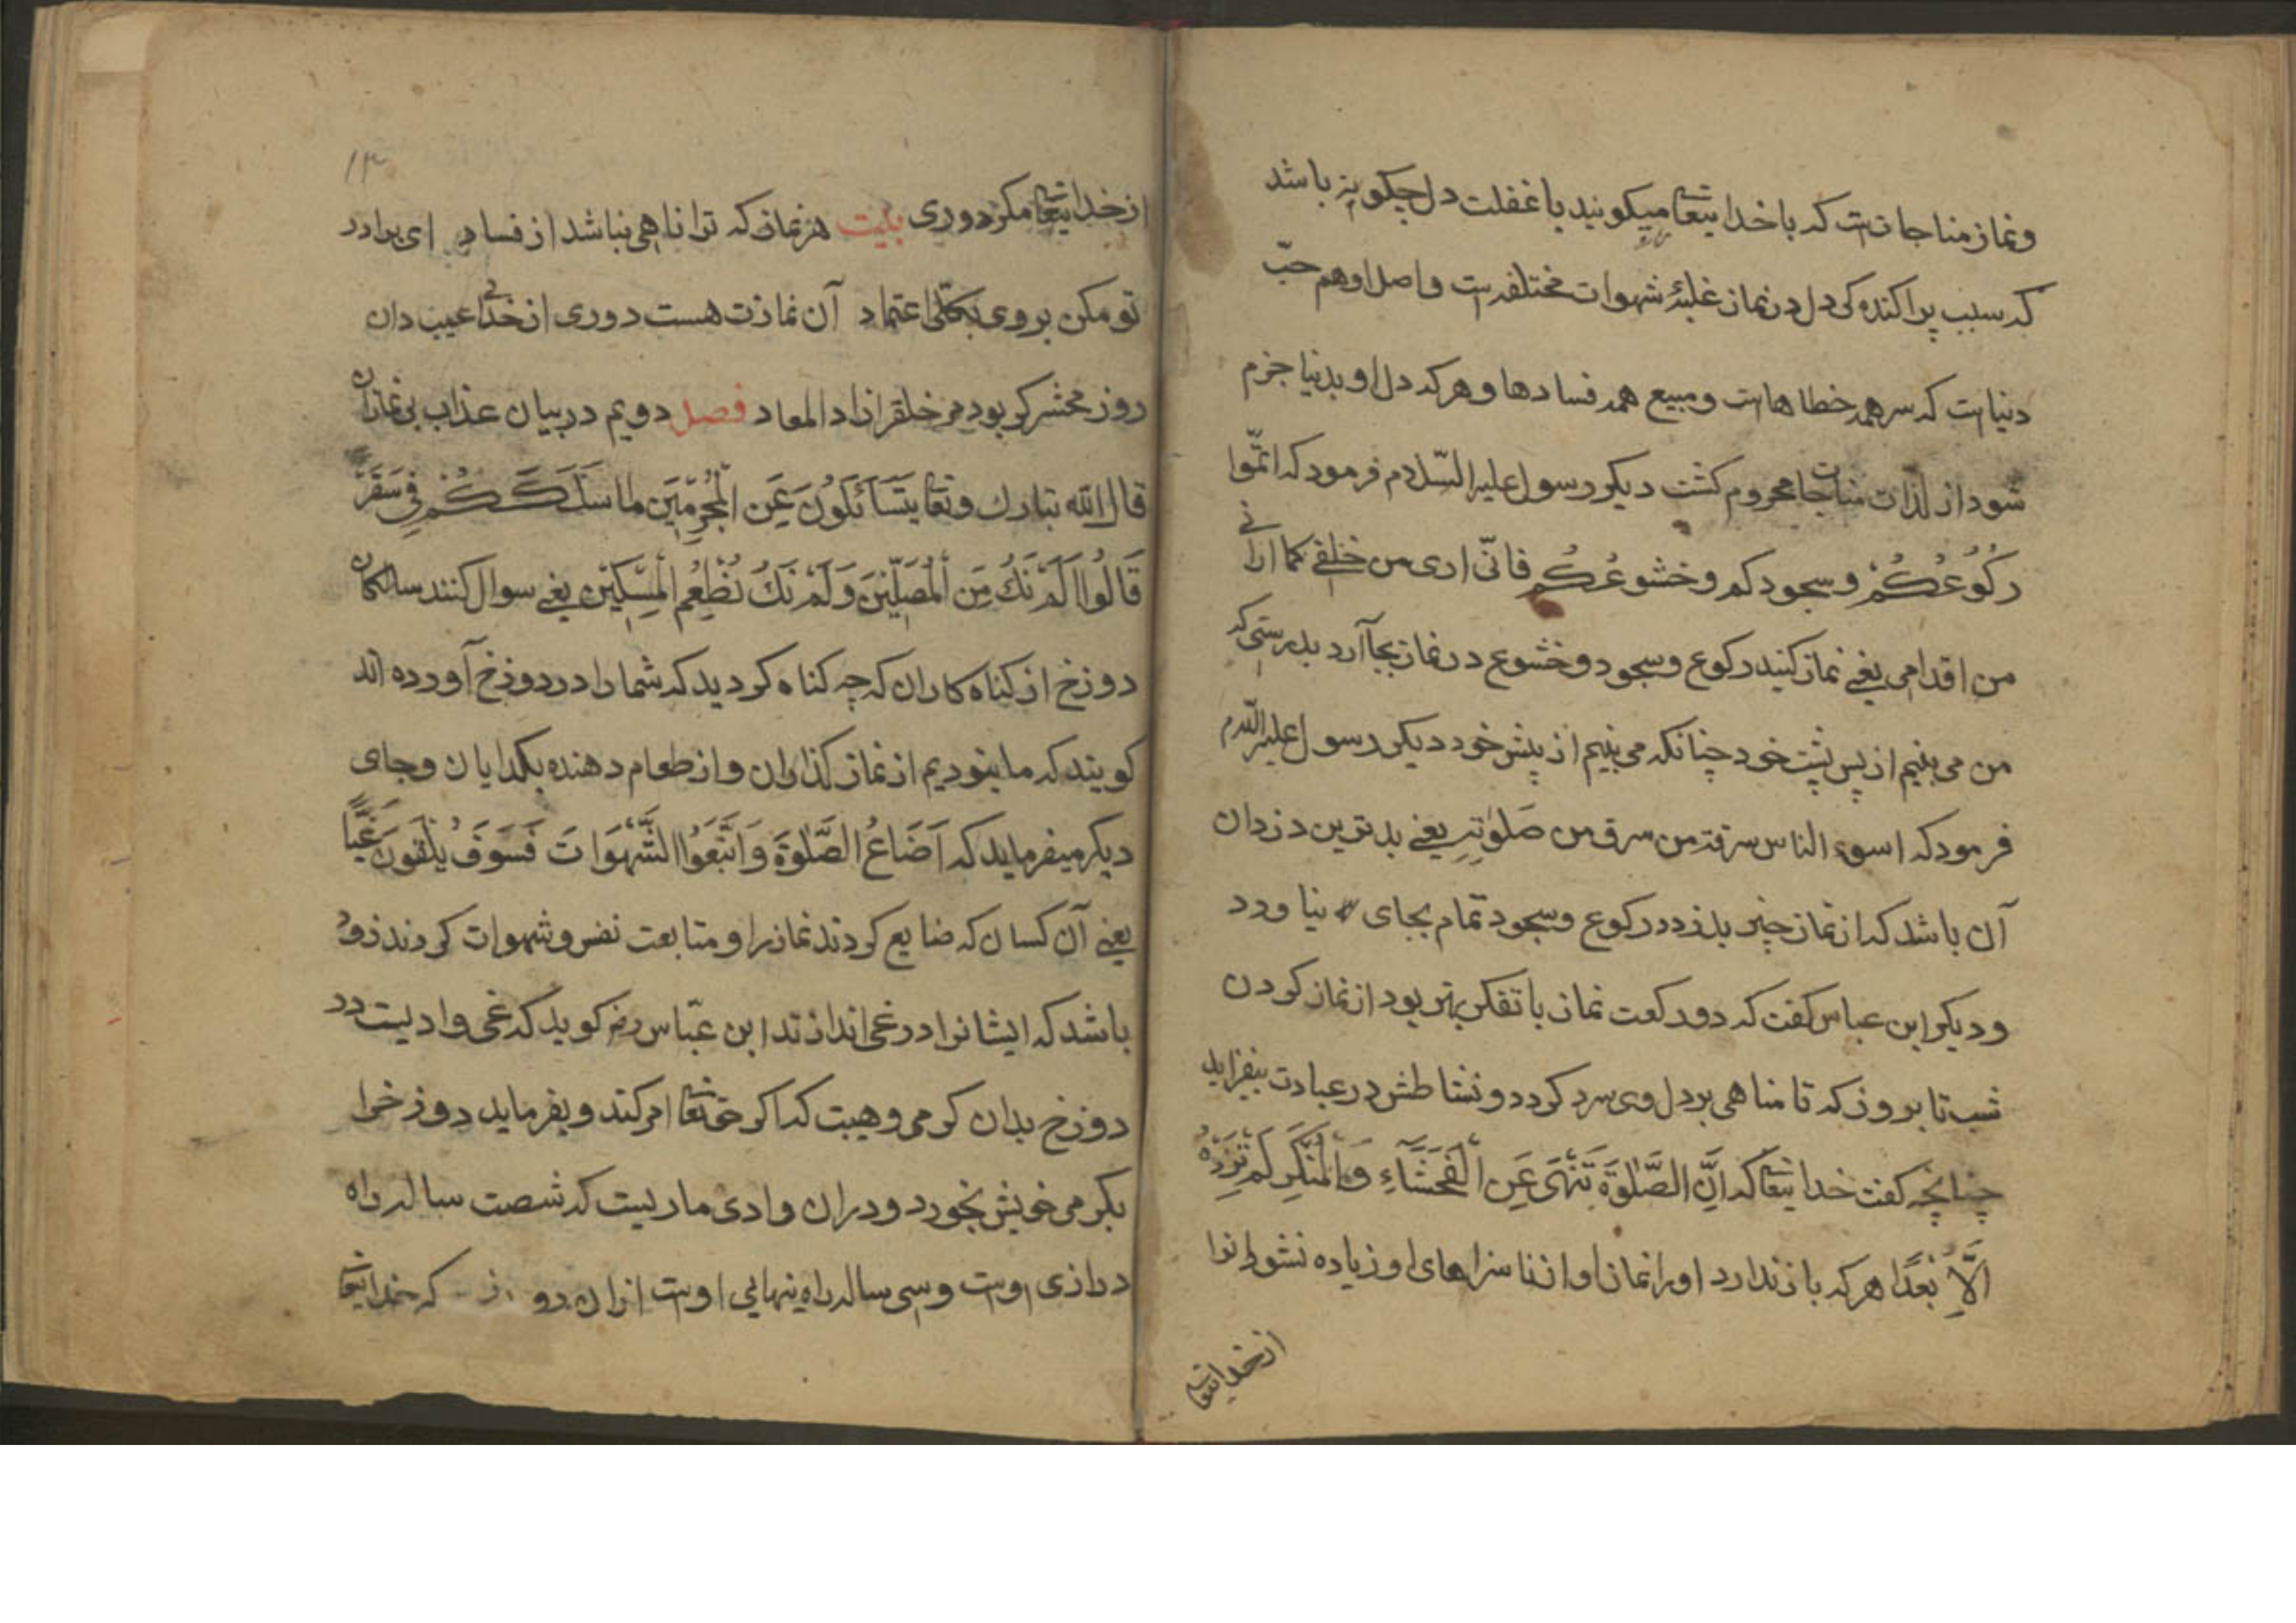 ونماز مناجات است که با خدایتعا میکویند با غفلت دل چکونه باشد
که سبب پراکنده کی دل در نماز غلبهٔ شهوات مختلفه است واصل او هم حبّ
دنیا است که سر همه خطاها است ومبیع همه فسادها وهر که دل او بدنیا خرم
شود از لذّات مناجات محروم کشت دیکر رسول علیه السّلام فرمود که اتمّوا
رُكُوُعُكُمْ وسجودکم وخشوعُكُم فانّی اری من خلفے کما ارانے
من اقدامی یعنے نماز کنید رکوع وسجود وخشوع در نماز بجا آرد بدرستی که
من می بینیم از پس پشت خود چنانکه می بینیم از پیش خود دیکر رسول علیه السّلام
فرمود که اسوء الناس سرقة من سرق من صَلوٰتِهِ یعنے بدترین دزدان
آن باشد که از نماز چیز بدزدد رکوع وسجود تمام بجای نیاورد
ودیکر ابن عباس کفت که دو رکعت نماز با تفکر بهتر بود از نماز کردن
شب تا بروز که تا مناهی بر دل وی سرد کردد ونشاطش در عبادت بیفزاید
چنانچه کفت خدایتعا که اِنَّ الصَّلٰوةَ تَنْهَى عَنِ الْفَحْشَآءِ وَالْمُنْكَرِ لَمْ تَزِدْهُ
اِلَّا بُعْدًا هر که باز ندارد اورا نماز او از ناسزاهای او زیاده نشود اورا
ازخدایتعا
۱۳
از خدایتعا مکر دوری بیت هر نماز که ترا ناهی نباشد از فساد ای برادر
تو مکن بر وی بکلّی اعتماد آن نمازت هست دوری از خدائے عیب دان
روز محشر کر بود مر خلقرا زاد المعاد فصل دویم در بیان عذاب بی نمازان
قال الله تبارك وتعا یَتَسَائَلُونَ عَنِ الْمُجْرِمِيَن ما سَلَكَكُمْ فِى سَقَرَ
قَالُوا لَمْ نَكُ مِنَ الْمُصَلِّينَ وَلَمْ نَكُ نُطْعِمُ الْمِسْكِيْنَ یعنے سوال کنند سالکان
دوزخ از کناه کاران که چه کناه کردید که شمارا در دوزخ آورده اند
کویند که ما نبودیم از نماز کذاران واز طعام دهنده بکدایان وجای
دیکر میفرماید که اَضَاعُ الصَّلٰوةَ وَاتَّبَعَوُا الشَّهَوَاتَ فَسَوَفَ يَلْقَونَ غَيًّا
یعنے آن کسان که ضایع کردند نماز را ومتابعت نفس وشهوات کردند زود
باشد که ایشانرا در غی اندازند ابن عبّاس رضہ کوید که غی وادیست در
دوزخ بدان کرمی وهیبت که اکر حق تعا امر کند وبفرماید دوزخرا
بکرمی خویش بخورد ودران وادی ماریست که شصت ساله راه
درازی اوست وسی ساله راه پنهایی اوست ازان روز که خدایتعا